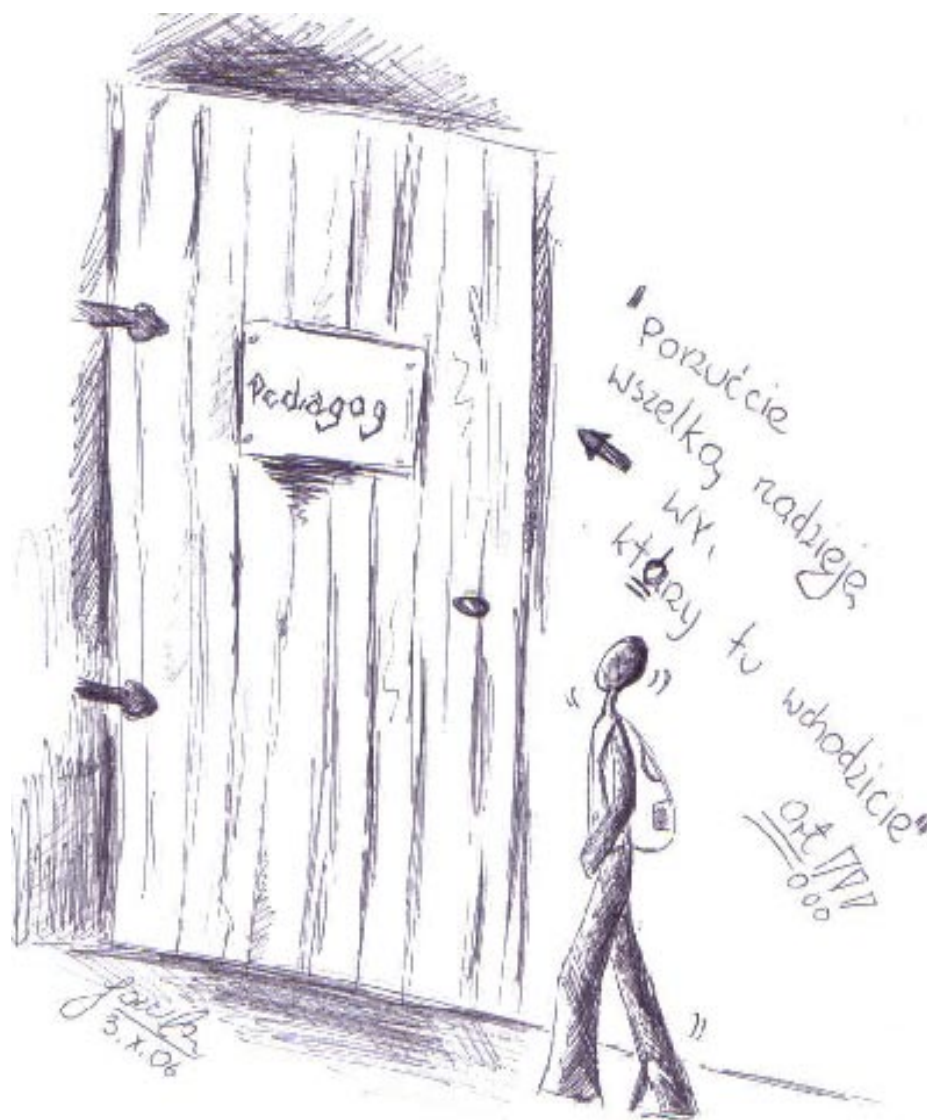 Pedagog
"Porzućcie
wszelką nadzieję
wy,
którzy tu wchodzicie"
Ort!!!
3.X.06